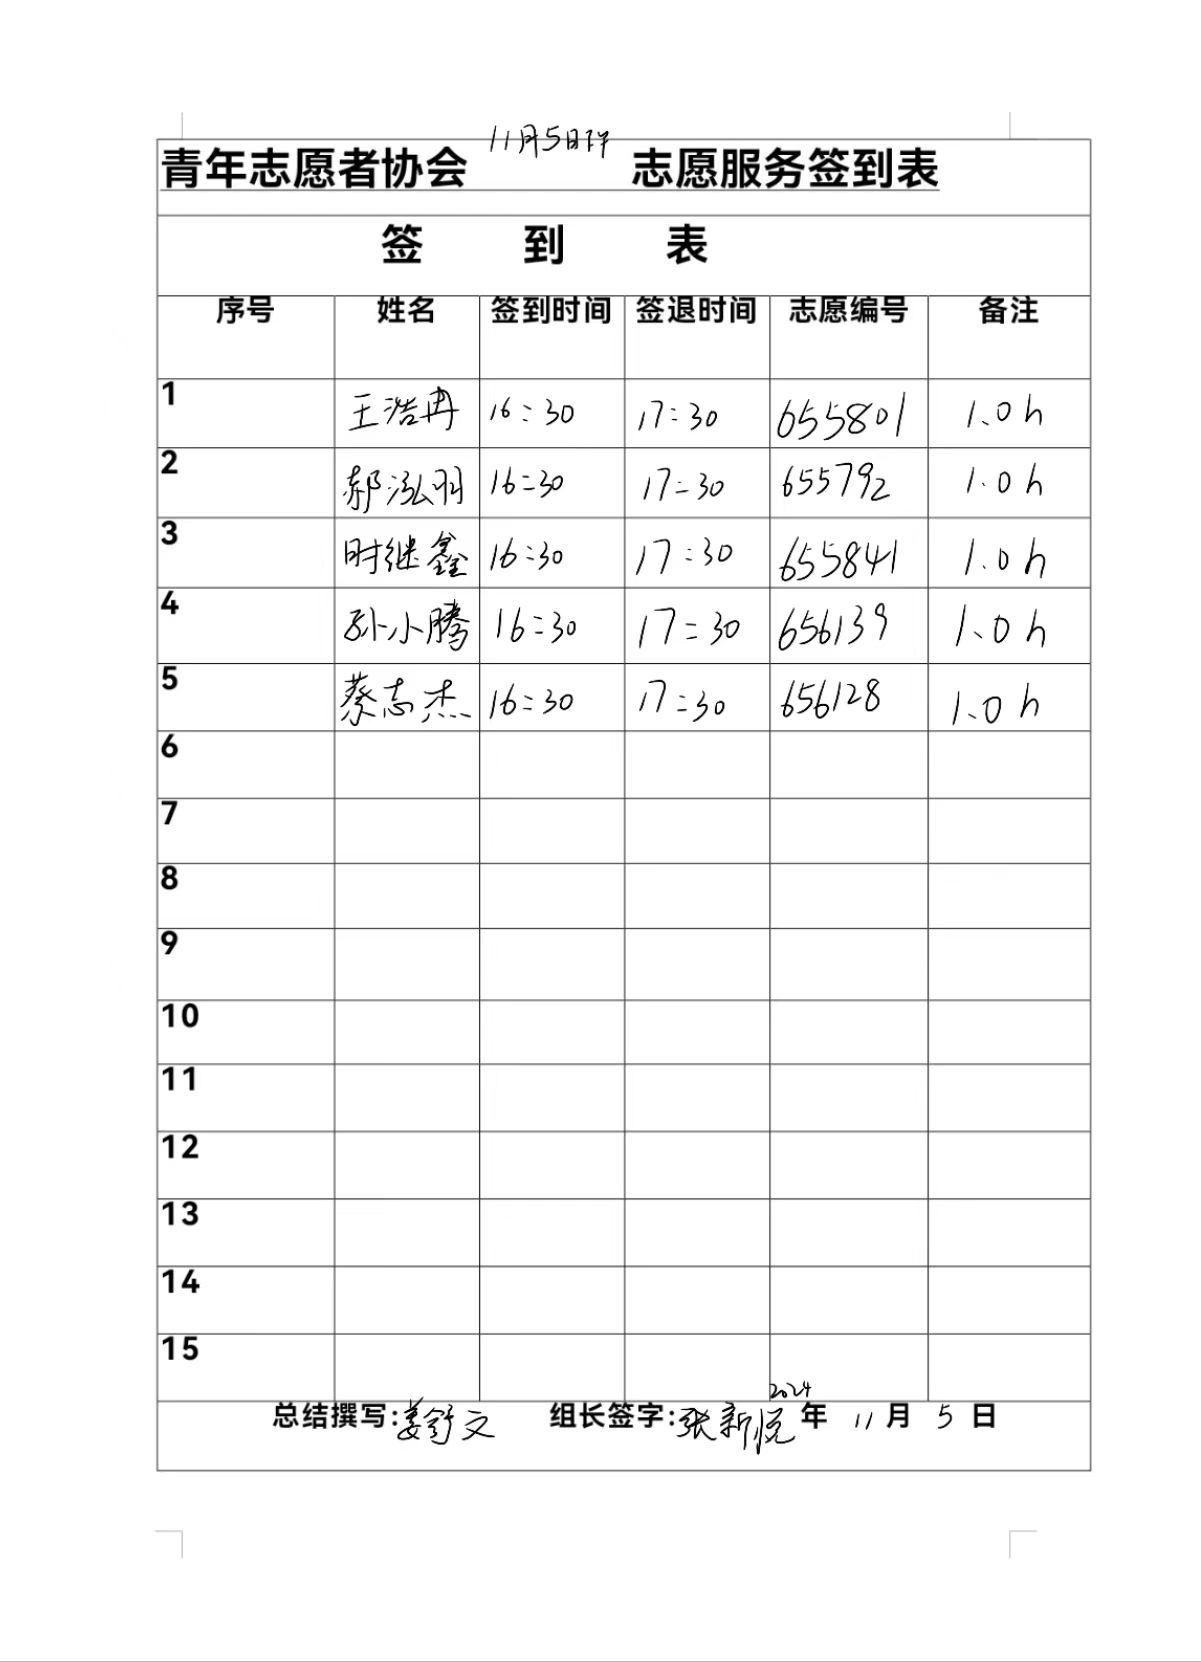 11月5日下午
青年志愿者协会 志愿服务签到表
签 到 表
序号 姓名 签到时间 签退时间 志愿编号 备注
1 王浩冉 16:30 17:30 655801 1.0h
2 郝泓羽 16:30 17:30 655792 1.0h
3 时继鑫 16:30 17:30 655841 1.0h
4 孙小腾 16:30 17:30 656139 1.0h
5 蔡志杰 16:30 17:30 656128 1.0h
6
7
8
9
10
11
12
13
14
15
总结撰写:姜舒文 组长签字:张新悦 2024年 11月 5日